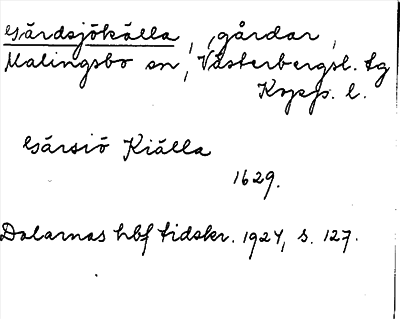 Gärdsjökälla, gårdar,
Malingsbo sn, Västerbergsl. tg
Kopp. l.
Gärsiö Kiälla
1629.
Dalarnas hbf tidskr. 1924, s. 127.